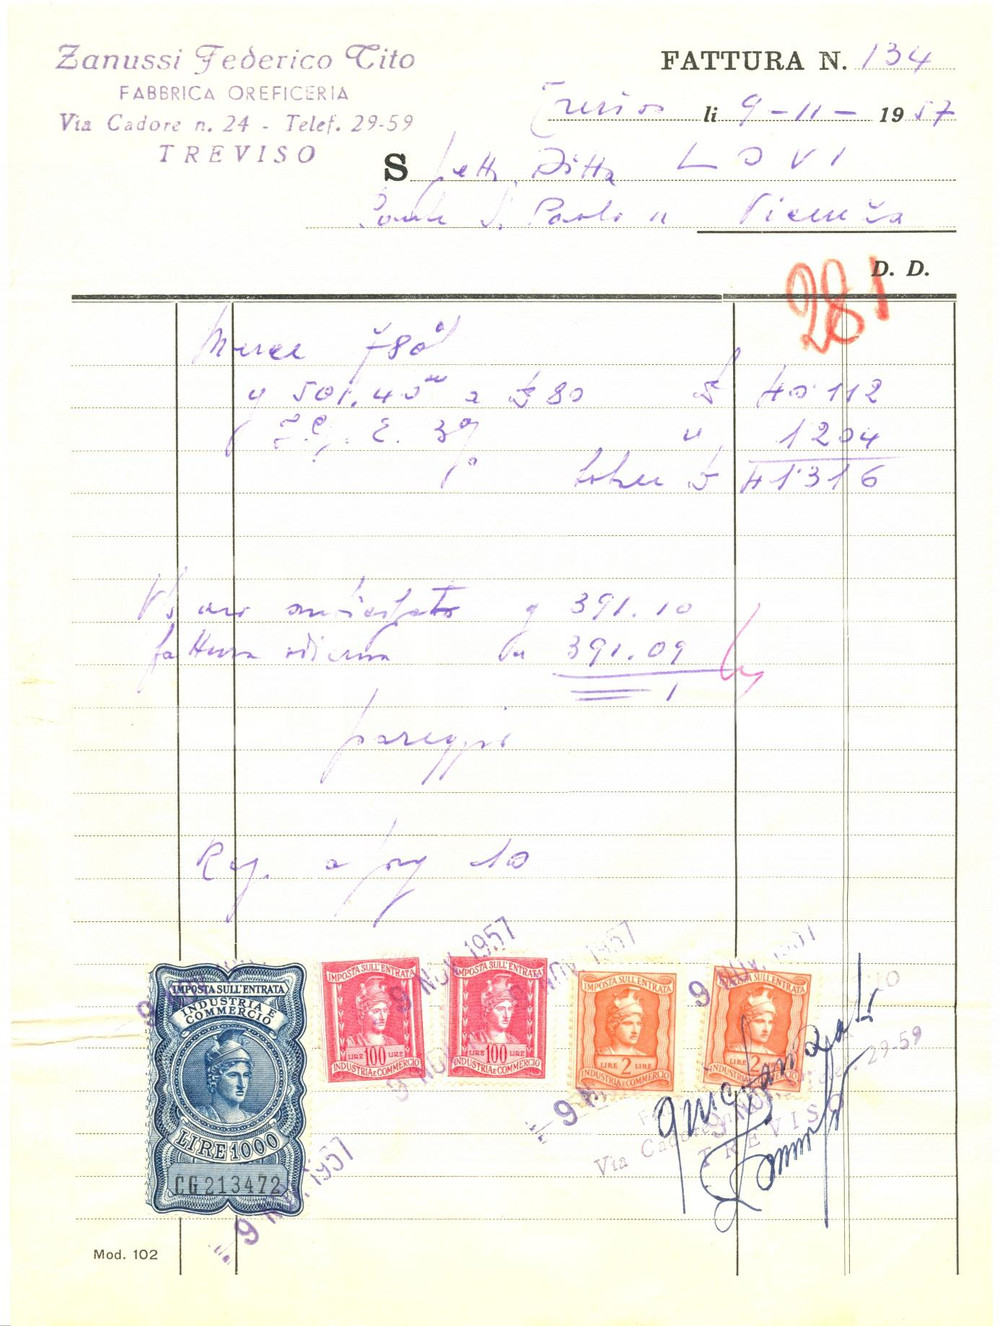 Zanussi Federico Tito
FABBRICA OREFICERIA
Via Cadore n. 24 - Telef. 29-59
TREVISO
FATTURA N. 134
Treviso li 9-11-1957
Spett. Ditta LOVI
Ponte S. Paolo 11 Vicenza
D. D.
281
Merce 780
g 501.40 a £ 80 £ 40.112
I.G.E. 3% " 1204
totale £ 41.316
Vs oro anticipato g 391.10
fattura odierna 391.09
1
pareggio
Reg. a pag 10
9 NOV. 1957
IMPOSTA SULL'ENTRATA
INDUSTRIA E COMMERCIO
LIRE 1000
CG 213472
IMPOSTA SULL'ENTRATA
LIRE 100 LIRE
INDUSTRIA E COMMERCIO
IMPOSTA SULL'ENTRATA
LIRE 100 LIRE
INDUSTRIA E COMMERCIO
IMPOSTA SULL'ENTRATA
LIRE 2 LIRE
INDUSTRIA E COMMERCIO
IMPOSTA SULL'ENTRATA
LIRE 2
INDUSTRIA E COMMERCIO
Via Cadore 29-59
TREVISO
Mod. 102